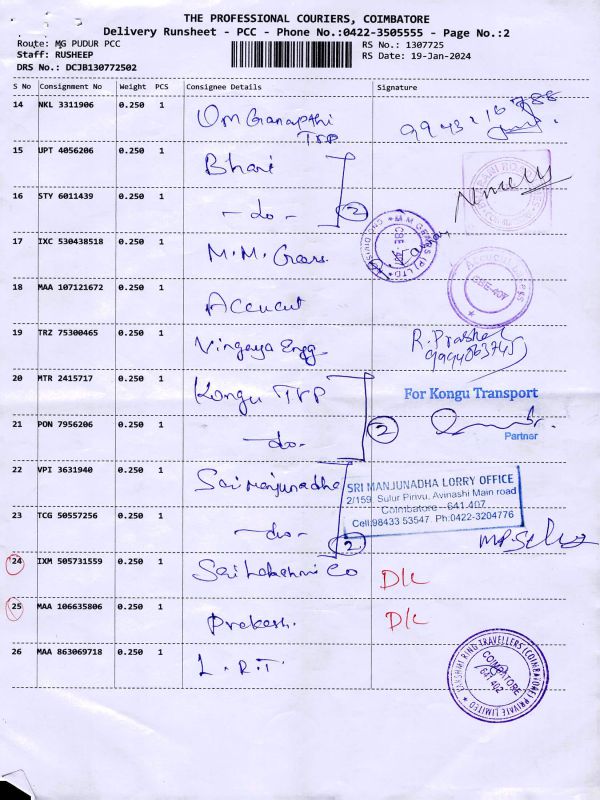 THE PROFESSIONAL COURIERS, COIMBATORE
Delivery Runsheet - PCC - Phone No.:0422-3505555 - Page No.:2
Route: MG PUDUR PCC
RS No.: 1307725
Staff: RUSHEEP
RS Date: 19-Jan-2024
DRS No.: DCJB130772502
S No Consignment No Weight PCS Consignee Details Signature
14 NKL 3311906 0.250 1 Om Ganapathi TVP
15 UPT 4056206 0.250 1 Bhari
16 STY 6011439 0.250 1 - do - 2
17 IXC 530438518 0.250 1 M.M. Gears
M M GEARS (P) LTD
CBE-407
18 MAA 107121672 0.250 1 Accucut
CBE-407
19 TRZ 75300465 0.250 1 Vingaya Engg R. Prashed
20 MTR 2415717 0.250 1 Kongu TVP
For Kongu Transport
21 PON 7956206 0.250 1 - do - 2
Partner
22 VPI 3631940 0.250 1 Sai manjunadha
SRI MANJUNADHA LORRY OFFICE
2/159, Sulur Pirivu, Avinashi Main road
Coimbatore - 641 407
Cell:98433 53547 Ph:0422-3204776
23 TCG 50557256 0.250 1 - do - 2
24 IXM 505731559 0.250 1 Sai Lakshmi Co D/L
25 MAA 106635806 0.250 1 Prakash. D/L
26 MAA 863069718 0.250 1 L.R.T.
LAKSHMI RING TRAVELLERS (COIMBATORE) PRIVATE LIMITED
COIMBATORE
641 402